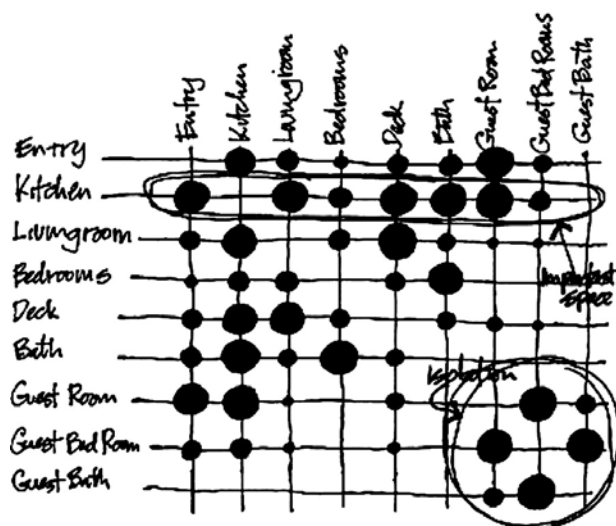 Entry
Kitchen
Livingroom
Bedrooms
Deck
Bath
Guest Room
Guest Bed Rooms
Guest Bath
Entry
Kitchen
Livingroom
Bedrooms
Deck
Bath
Guest Room
Guest Bed Room
Guest Bath
Important
space
Isolation